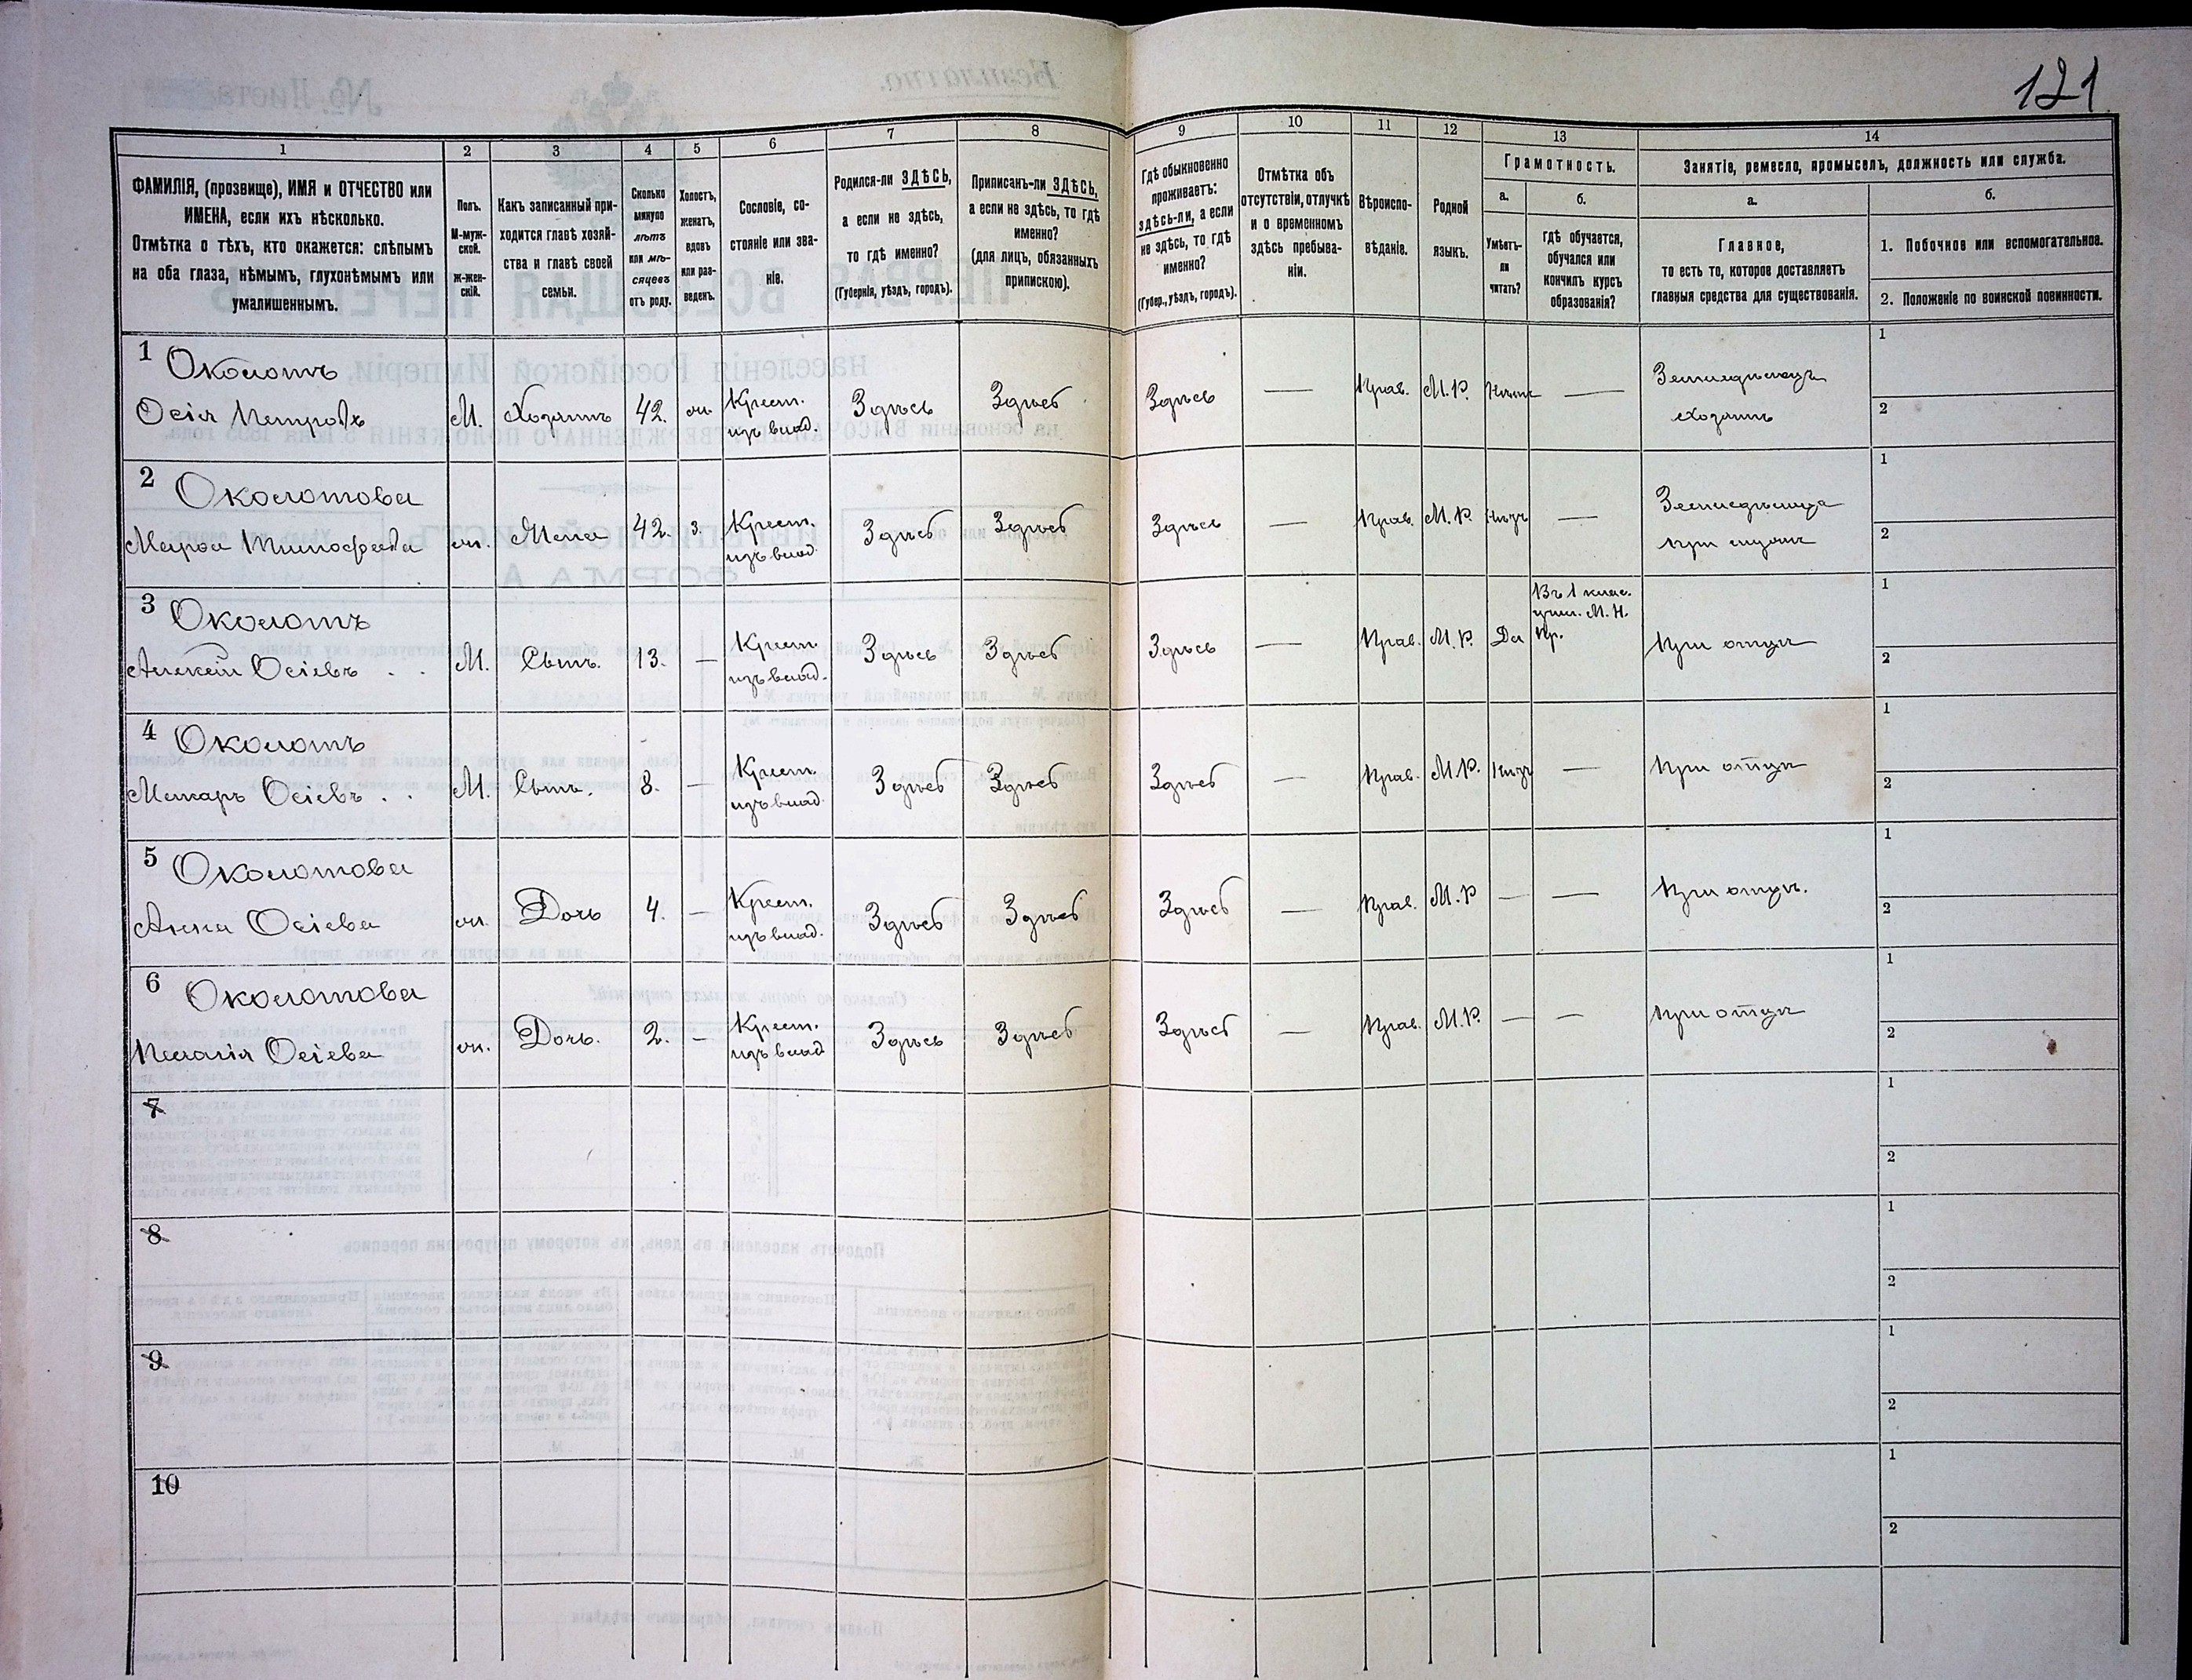 121
1
2
3
4
5
6
7
8
9
10
11
12
13
14
ФАМИЛІЯ, (прозвище), ИМЯ и ОТЧЕСТВО или
ИМЕНА, если ихъ нѣсколько.
Отмѣтка о тѣхъ, кто окажется: слѣпымъ
на оба глаза, нѣмымъ, глухонѣмымъ или
умалишеннымъ.
Полъ.
М-муж-
ской.
Ж-жен-
скій.
Какъ записанный при-
ходится главѣ хозяй-
ства и главѣ своей
семьи.
Сколько
минуло
лѣтъ
или мѣ-
сяцевъ
отъ роду.
Холостъ,
женатъ,
вдовъ
или раз-
веденъ.
Сословіе, со-
стояніе или зва-
ніе.
Родился-ли ЗДѢСЬ,
а если не здѣсь,
то гдѣ именно?
(Губернія, уѣздъ, городъ).
Приписанъ-ли ЗДѢСЬ,
а если не здѣсь, то гдѣ
именно?
(для лицъ, обязанныхъ
припискою).
Гдѣ обыкновенно
проживаетъ:
здѣсь-ли, а если
не здѣсь, то гдѣ
именно?
(Губер., уѣздъ, городъ).
Отмѣтка объ
отсутствіи, отлучкѣ
и о временномъ
здѣсь пребыва-
ніи.
Вѣроиспо-
вѣданіе.
Родной
языкъ.
Грамотность.
а.
Умѣетъ-
ли
читать?
б.
гдѣ обучается,
обучался или
кончилъ курсъ
образованія?
Занятія, ремесло, промыселъ, должность или служба.
а.
Главное,
то есть то, которое доставляетъ
главныя средства для существованія.
б.
1. Побочное или вспомогательное.
2. Положеніе по воинской повинности.
1 Околотъ
Осія Петровъ
М.
Хозяинъ
42.
ж.
Крест.
изъ влад.
Здѣсь
Здѣсь
Здѣсь
—
Прав.
М.Р.
Нѣтъ
—
Земледѣлецъ
хозяинъ
1
2
2 Околотова
Марѳа Тимофѣева
ж.
Жена
42.
з.
Крест.
изъ влад.
Здѣсь
Здѣсь
Здѣсь
—
Прав.
М.Р.
—
Земледѣлица
при мужѣ
1
2
3 Околотъ
Алексѣй Осіевъ
М.
Сынъ.
13.
—
Крест.
изъ влад.
Здѣсь
Здѣсь
Здѣсь
—
Прав.
М.Р.
Да
Въ 1 клас.
учил. М. Н.
Пр.
При отцѣ
1
2
4 Околотъ
Макаръ Осіевъ
М.
Сынъ.
8.
—
Крест.
изъ влад.
Здѣсь
Здѣсь
Здѣсь
—
Прав.
М.Р.
—
При отцѣ
1
2
5 Околотова
Анна Осіева
ж.
Дочь
4.
—
Крест.
изъ влад.
Здѣсь
Здѣсь
Здѣсь
—
Прав.
М.Р
—
—
При отцѣ.
1
2
6 Околотова
Пелагія Осіева
ж.
Дочь.
2.
—
Крест.
изъ влад
Здѣсь
Здѣсь
Здѣсь
—
Прав.
М.Р.
—
—
При отцѣ
1
2
7
1
2
8
1
2
9
1
2
10
1
2